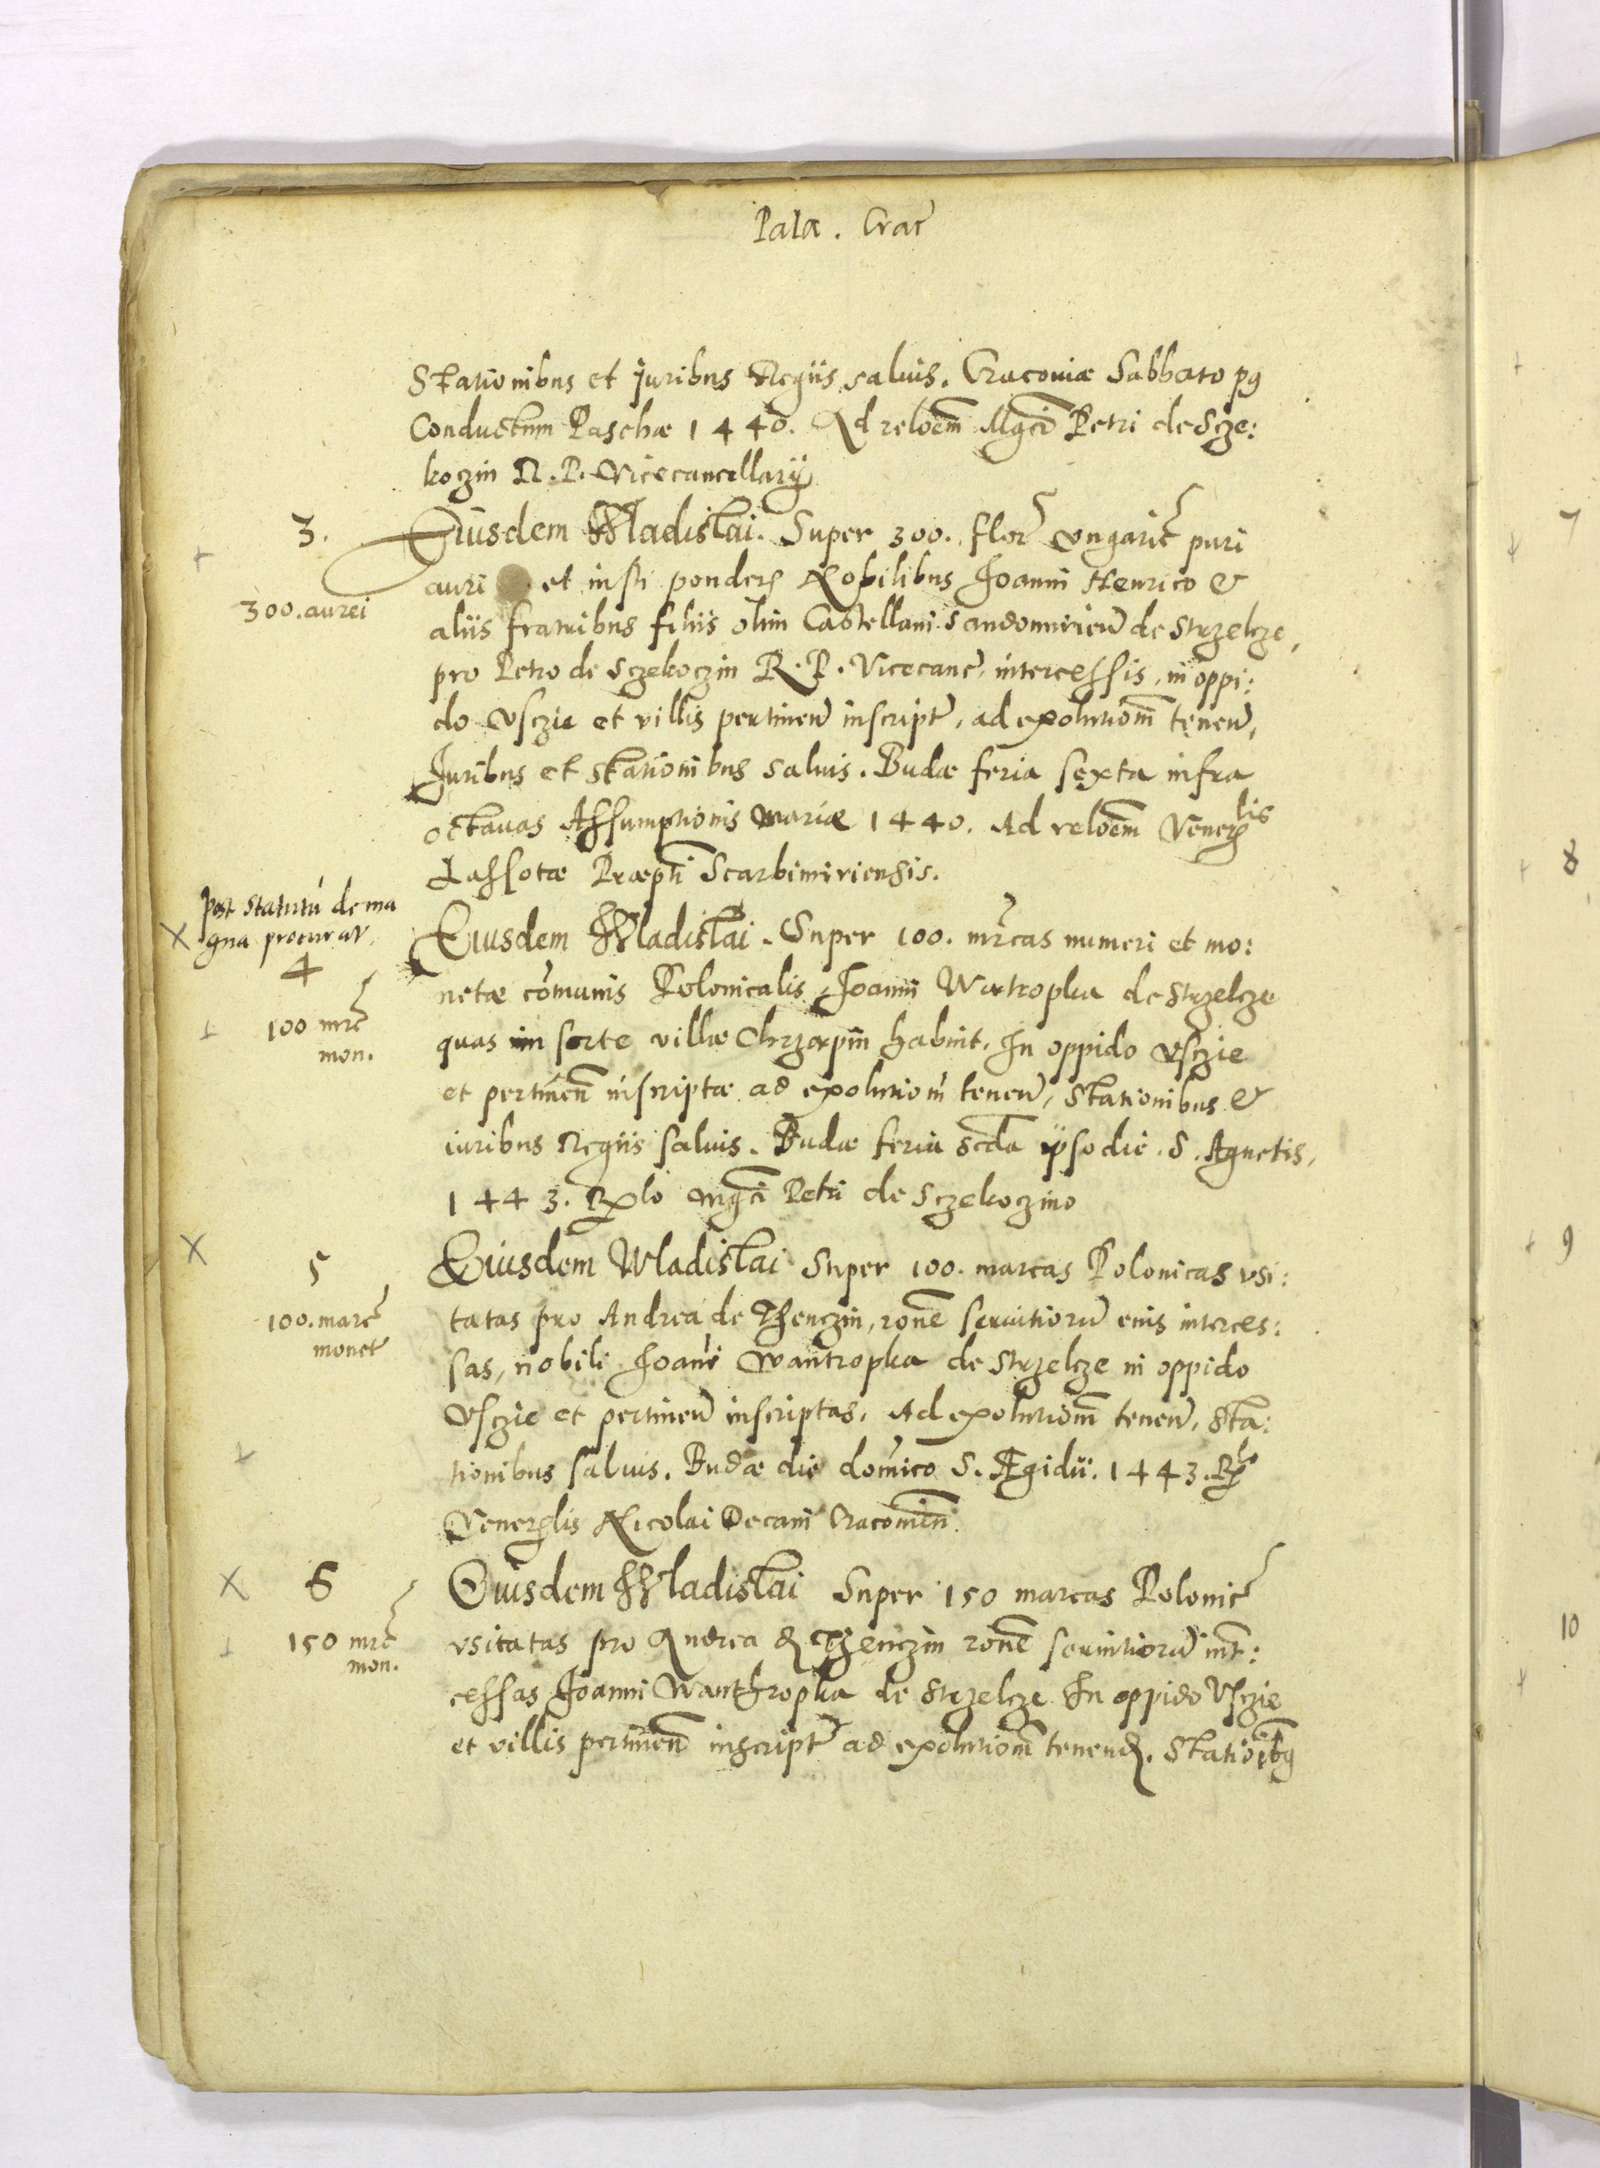 Pala. Crac̃
Stationibus et Juribus Regiis saluis. Cracouiæ Sabbato pꝰ
Conductum Paschæ 1440. Ad reloẽm Mgci Petri de Scze:
koczin R. P. Vicecancellarij
3.
Eiusdem Wladislai. Super 300. flor̃ Vngaric̃ puri
auri et iusti ponderis Nobilibus Joanni Henrico &
300. aurei
aliis fratribus filiis olim Castellani Sandomirien̄ de Strzelcze,
pro Petro de Sczekoczin R. P. Vicecanc̃ intercessis, in oppi:
do Vsczie et villis pertinen̄ inscript̃, ad exolutiom̃ tenen̄,
Juribus et stationibus saluis. Budæ feria sexta infra
octauas Assumptionis Mariæ 1440. Ad reloẽm Venerlis
Lassotæ Præpti Scarbimiriensis.
post statutū de ma
gna procurat.
4
Eiusdem Wladislai. Super 100. mrcas numeri et mo:
netæ cōmunis Polonicalis Joanni Watropka de Strzelcze
100 mrc̃
mon.
quas in sorte villæ Chrzapin habuit, In oppido Vsczie
et pertinen̄ inscriptæ ad exolutiom̃ tenen̄, Stationibus &
iuribus Regiis saluis. Budæ feria scda ipso die S. Agnetis,
1443. Rlo Mgci Petri de Sczekoczino
5
Eiusdem Wladislai Super 100. marcas Polonicas vsi:
100. marc̃
monet̃
tatas pro Andrea de Thenczin, ronẽ seruitiorū eius interces:
sas, nobili Joan̄i Wantropka de Strzelcze in oppido
Vsczie et pertinen̄ inscriptas, Ad exolutiom̃ tenen̄, Sta:
tionibus saluis. Budæ die dom̃ico S. Ægidii. 1443. Rlo
Venerlis Nicolai Decani Cracouien̄.
6
Eiusdem Wladislai Super 150 marcas Polonic̃
150 mrc̃
mon.
vsitatas pro Andrea de Thenczin ronẽ seruitiorū int̃:
cessas Joanni Wanthropka de Strzelcze In oppido Vsczie
et villis pertinen̄ inscript̃ ad exolutiom̃ tenend. Statioibꝰ
7
8
9
10